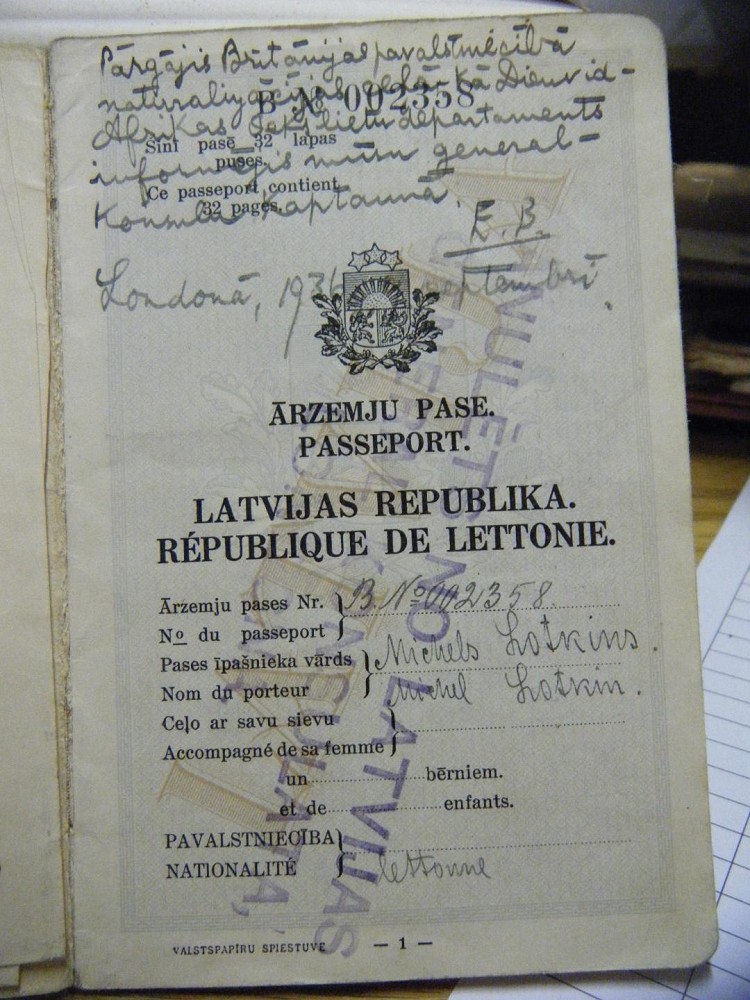 Pārgājis Britānijas pavalstniecībā
naturalizācijas ceļā, kā Dienvid-
Āfrikas iekšlietu departaments
informējis mūsu general-
Konsulu Kaptaunā.
E. B.
Londonā, septembrī
B № 002358
Šinī pasē 32 lapas
puses.
Ce passeport contient
32 pages.
ĀRZEMJU PASE.
PASSEPORT.
LATVIJAS REPUBLIKA.
RÉPUBLIQUE DE LETTONIE.
Ārzemju pases Nr. B. № 002358.
No du passeport
Pases īpašnieka vārds Michels Lotkins.
Nom du porteur Michel Lotkin.
Ceļo ar savu sievu
Accompagné de sa femme
un bērniem.
et de enfants.
PAVALSTNIECĪBA
NATIONALITÉ lettonne
VALSTSPAPĪRU SPIESTUVE — 1 —
ANULĒTS NO LATVIJAS
KONSULATA